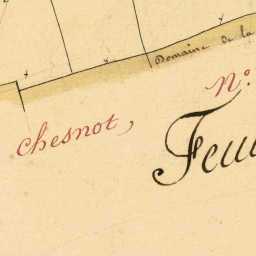 Domaine de la
N°.
Chesnot,
Feu